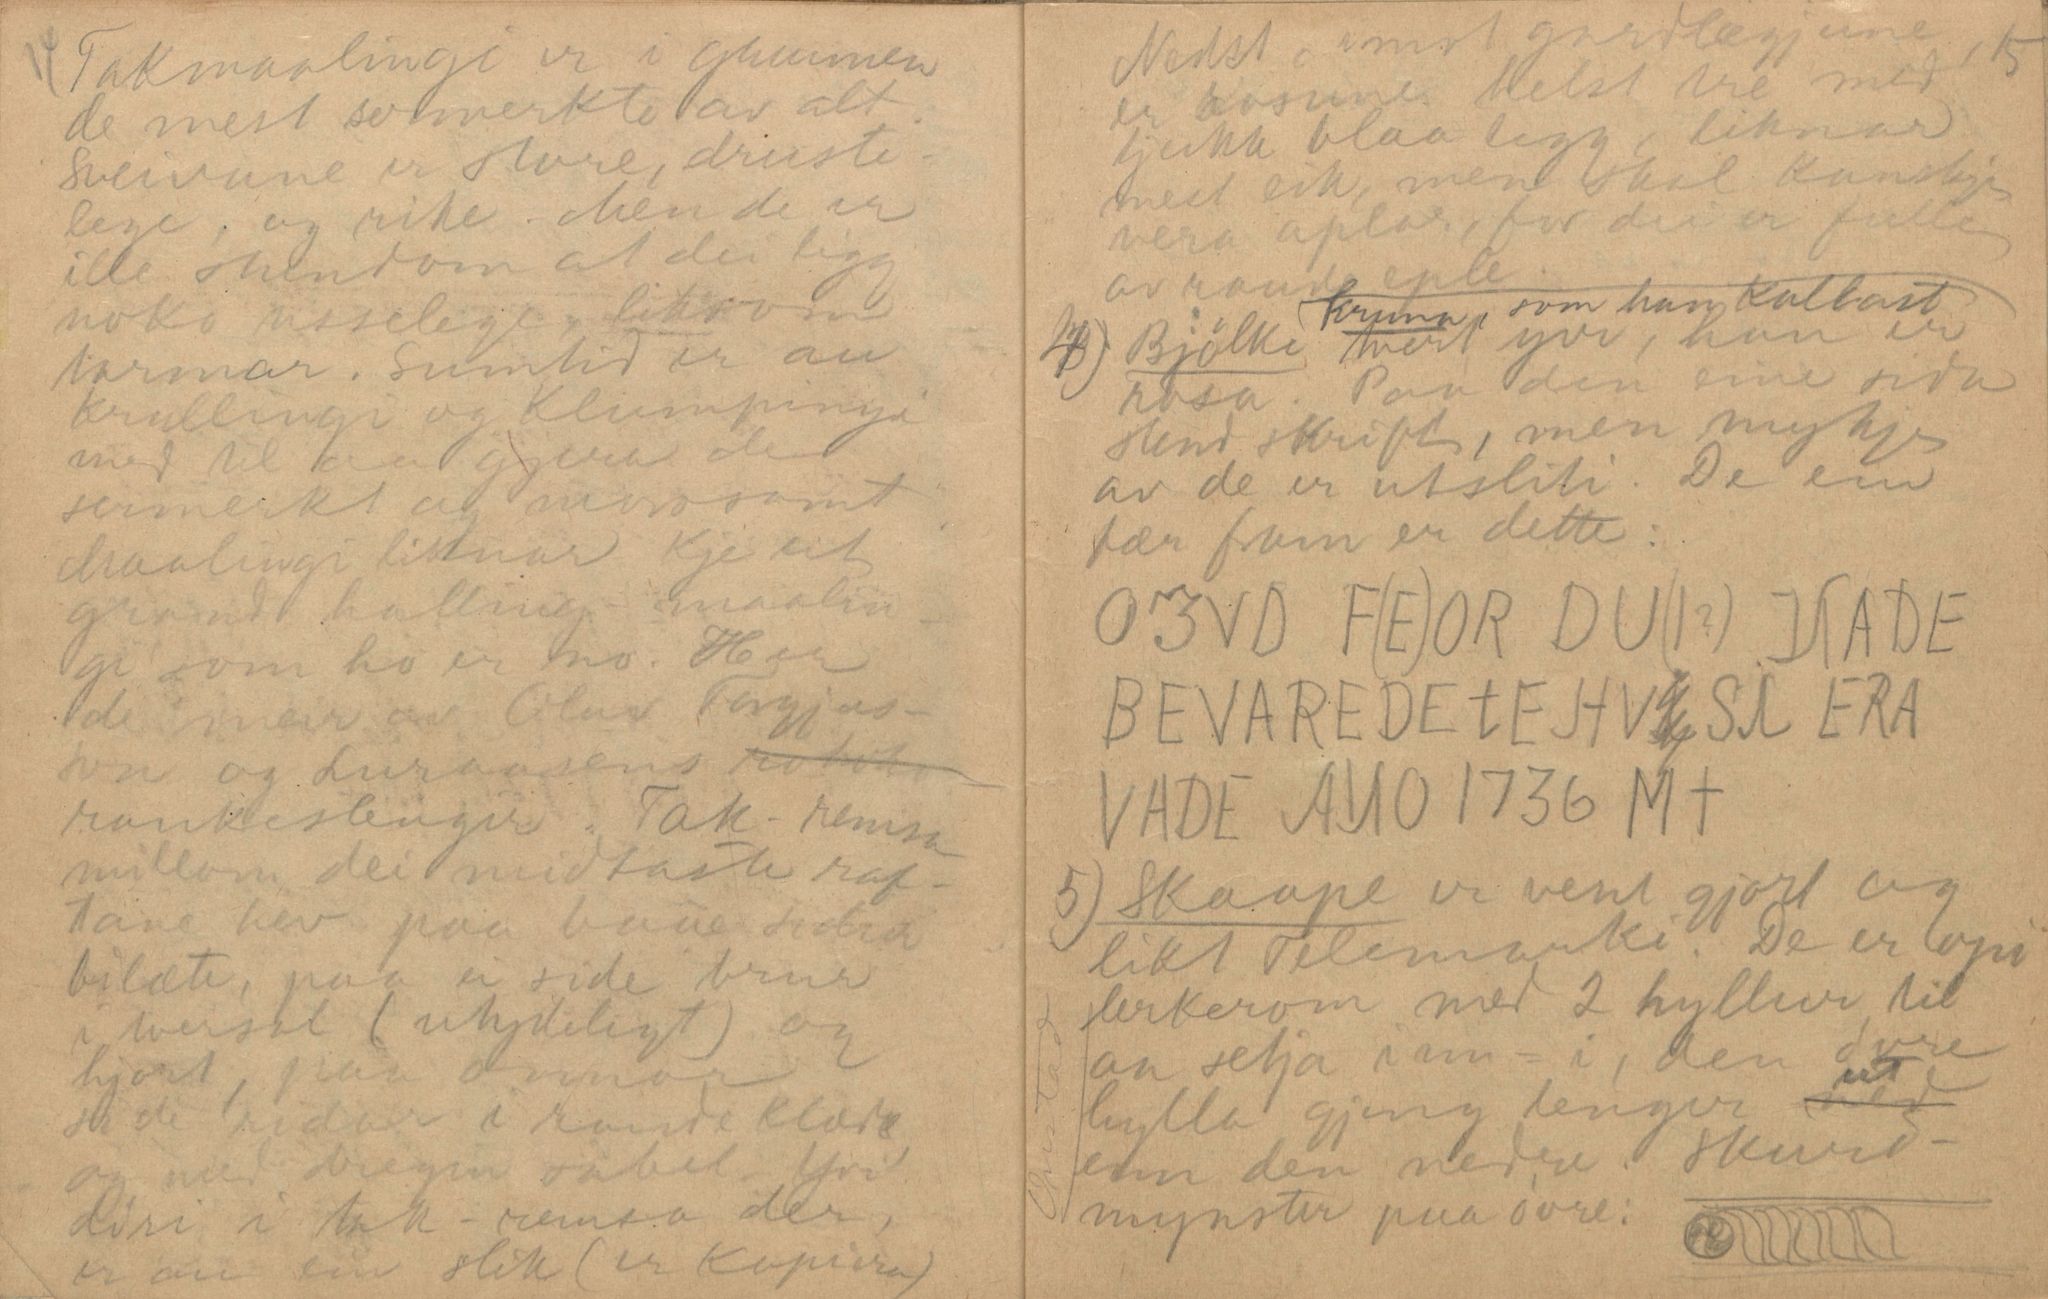 14
Takmaalingi er i grunnen
de mest sermerkte av alt.
Sveivane er store, druste-
lege, og rike. Men de er
ille stendom at dei ligg
noko usselege, liksom
tarmar. Sumtid er au
krullingi og klumpingi
med til aa gjera de
sermerkt og morosamt.
Maalingi liknar kje eit
grand halling-maalin-
gi som ho er no. Her er
de meir av Olav Torgjus-
son og Luraasens
rankeslengir. Tak-remsa
millom dei midtaste raf-
tane hev paa baae sidur
bilæte, paa ei side brur
i versal (utydeligt) og
hjort, paa onnor
side ridar i raude klæde
og med dregin sabel. Yvi
Diri i tak-remsa der,
er au ein slik (er kopiera)
15
Nedst imot gardlægjune
er rosune helst tre med
tjukk blaa legg, liknar
mest eik, men skal kanskje
vera aplar, for dei er fulle
av raude eple.
kruna, som han kallast
4) Bjölki tvert yvi, han er
rosa. Paa den eine sida
stend skrift, men mykje
av de er utsliti. De ein
fær fram er dette:
O3VD F(E)OR DU(1?) NADE
BEVAREDETEHV SN ERA
VADE ANNO 1736 M†
5) Skaape er vent gjort og
likt Telemarki. De er opi
lerkerom med 2 hyllur til
aa setja inn-i, den övre
ut
hylla gjeng lenger ned
enn den nedre. Skurd-
mynster paa övre: